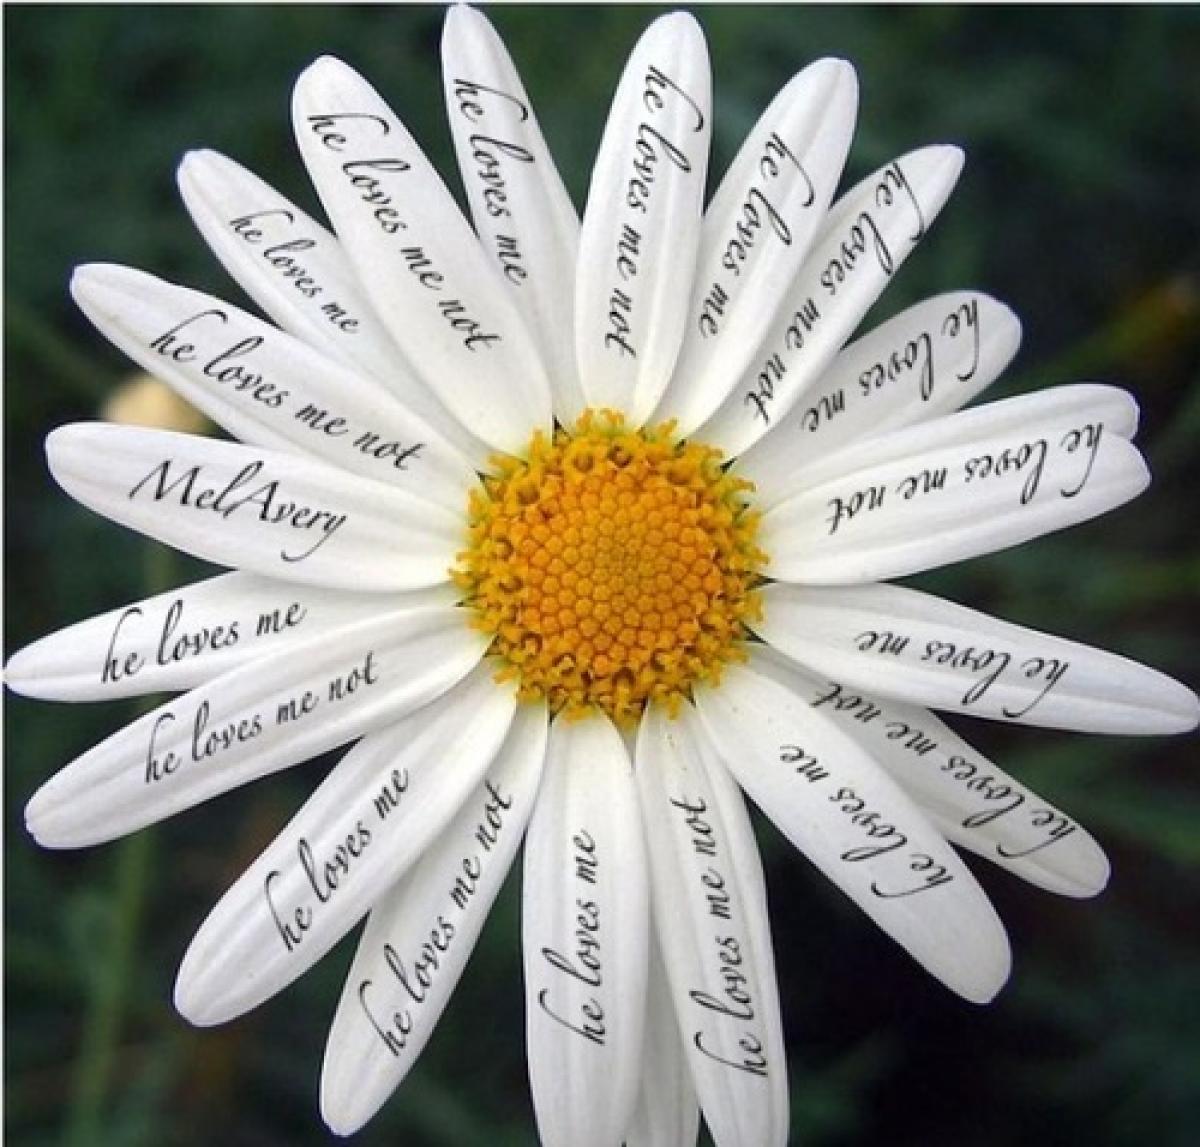 he loves me
he loves me not
he loves me
he loves me not
he loves me
he loves me not
he loves me
he loves me not
he loves me
he loves me not
he loves me
he loves me not
he loves me
he loves me not
he loves me
MelAvery
he loves me not
he loves me
he loves me not